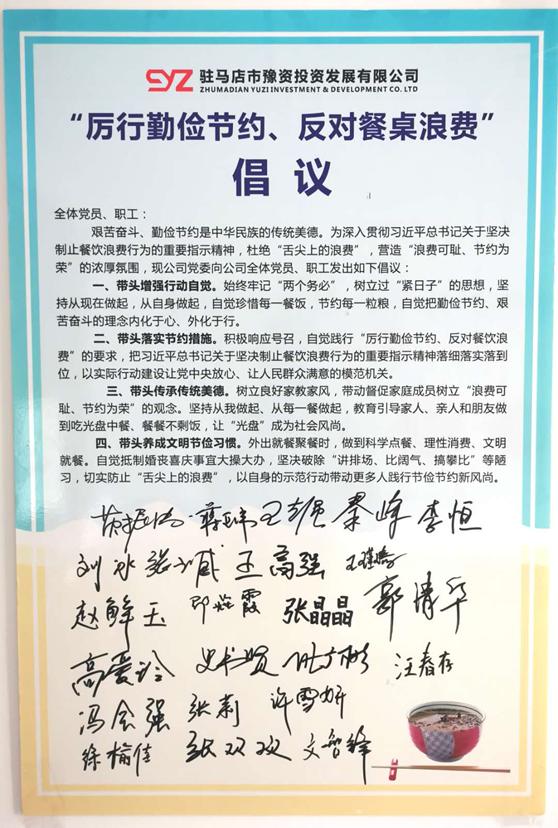 SYZ 驻马店市豫资投资发展有限公司
ZHUMADIAN YUZI INVESTMENT & DEVELOPMENT CO. LTD
“厉行勤俭节约、反对餐桌浪费”
倡 议
全体党员、职工：
艰苦奋斗、勤俭节约是中华民族的传统美德。为深入贯彻习近平总书记关于坚决
制止餐饮浪费行为的重要指示精神，杜绝“舌尖上的浪费”，营造“浪费可耻、节约为
荣”的浓厚氛围，现公司党委向公司全体党员、职工发出如下倡议：
一、带头增强行动自觉。始终牢记“两个务必”，树立过“紧日子”的思想，坚
持从现在做起，从自身做起，自觉珍惜每一餐饭，节约每一粒粮，自觉把勤俭节约、艰
苦奋斗的理念内化于心、外化于行。
二、带头落实节约措施。积极响应号召，自觉践行“厉行勤俭节约、反对餐桌浪
费”的要求，把习近平总书记关于坚决制止餐饮浪费行为的重要指示精神落细落实落到
位，以实际行动建设让党中央放心、让人民群众满意的模范机关。
三、带头传承传统美德。树立良好家教家风，带动督促家庭成员树立“浪费可
耻、节约为荣”的观念。坚持从我做起、从每一餐做起，教育引导家人、亲人和朋友做
到吃光盘中餐、餐餐不剩饭，让“光盘”成为社会风尚。
四、带头养成文明节俭习惯。外出就餐聚餐时，做到科学点餐、理性消费、文明
就餐。自觉抵制婚丧喜庆事宜大操大办，坚决破除“讲排场、比阔气、搞攀比”等陋
习，切实防止“舌尖上的浪费”，以自身的示范行动带动更多人践行节俭节约新风尚。
秦峰 李恒
刘冰 王高强
赵解玉 张晶晶 郭清华
高爱玲 汪春存
冯会强 张莉 许雪妍
徐榆佳 张双双